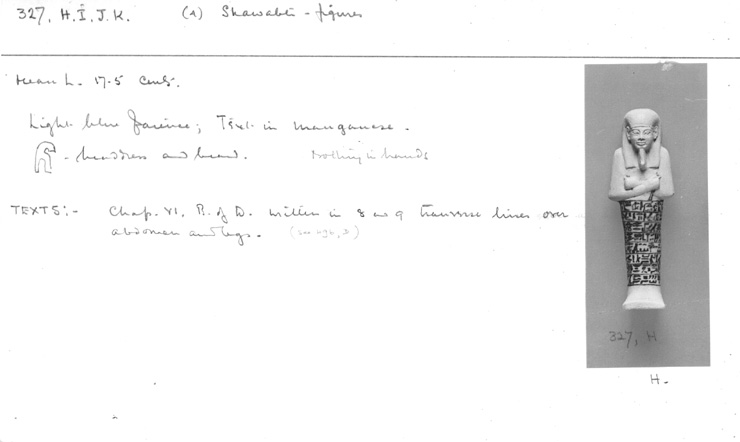 327, H. I. J. K. (4) Shawabti-figures
Mean L. 17.5 Cents.
Light blue faience; Text in manganese.
- headdress and beard. Nothing in hands
TEXTS:- Chap. VI. B. of D. written in 8 and 9 transverse lines over
abdomen and legs. (see 496, D)
327, H
H.